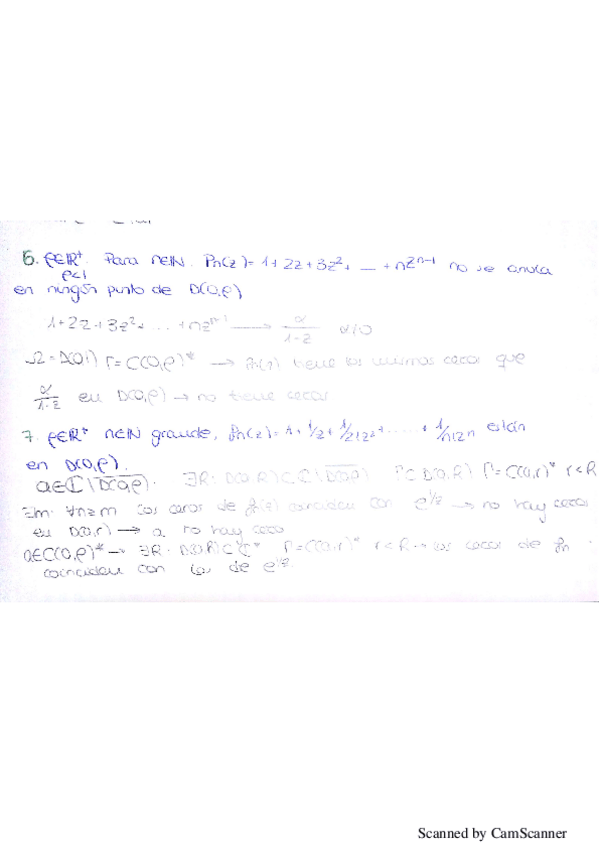 6. ρ∈ℝ⁺ ρ<1. Para n∈ℕ. Pn(z)=1+2z+3z²+ ... +nzⁿ⁻¹ no se anula
en ningún punto de D(0,ρ)
1+2z+3z²+...+nzⁿ⁻¹ ⟶ α/(1-z) α≠0
Ω=D(0,1) Γ=C(0,ρ)* → Pn(z) tiene los mismos ceros que
α/(1-z) en D(0,ρ) → no tiene ceros
7. ρ∈ℝ⁺ n∈ℕ grande, fn(z)=1+1/z+1/2!z²+......+1/n!zⁿ están
en D(0,ρ).
a∈ℂ\D(0,ρ). ∃R: D(a,R)⊂ℂ\D(0,ρ) Γ⊂D(a,R) Γ=C(a,r)* r<R
∃m: ∀n≥m los ceros de fn(z) coinciden con e^1/z → no hay ceros
en D(a,r) → a no hay cero
a∈C(0,ρ)* → ∃R: D(a,R)⊂ℂ* Γ=C(a,r)* r<R → los ceros de fn
coinciden con los de e^1/z.
Scanned by CamScanner